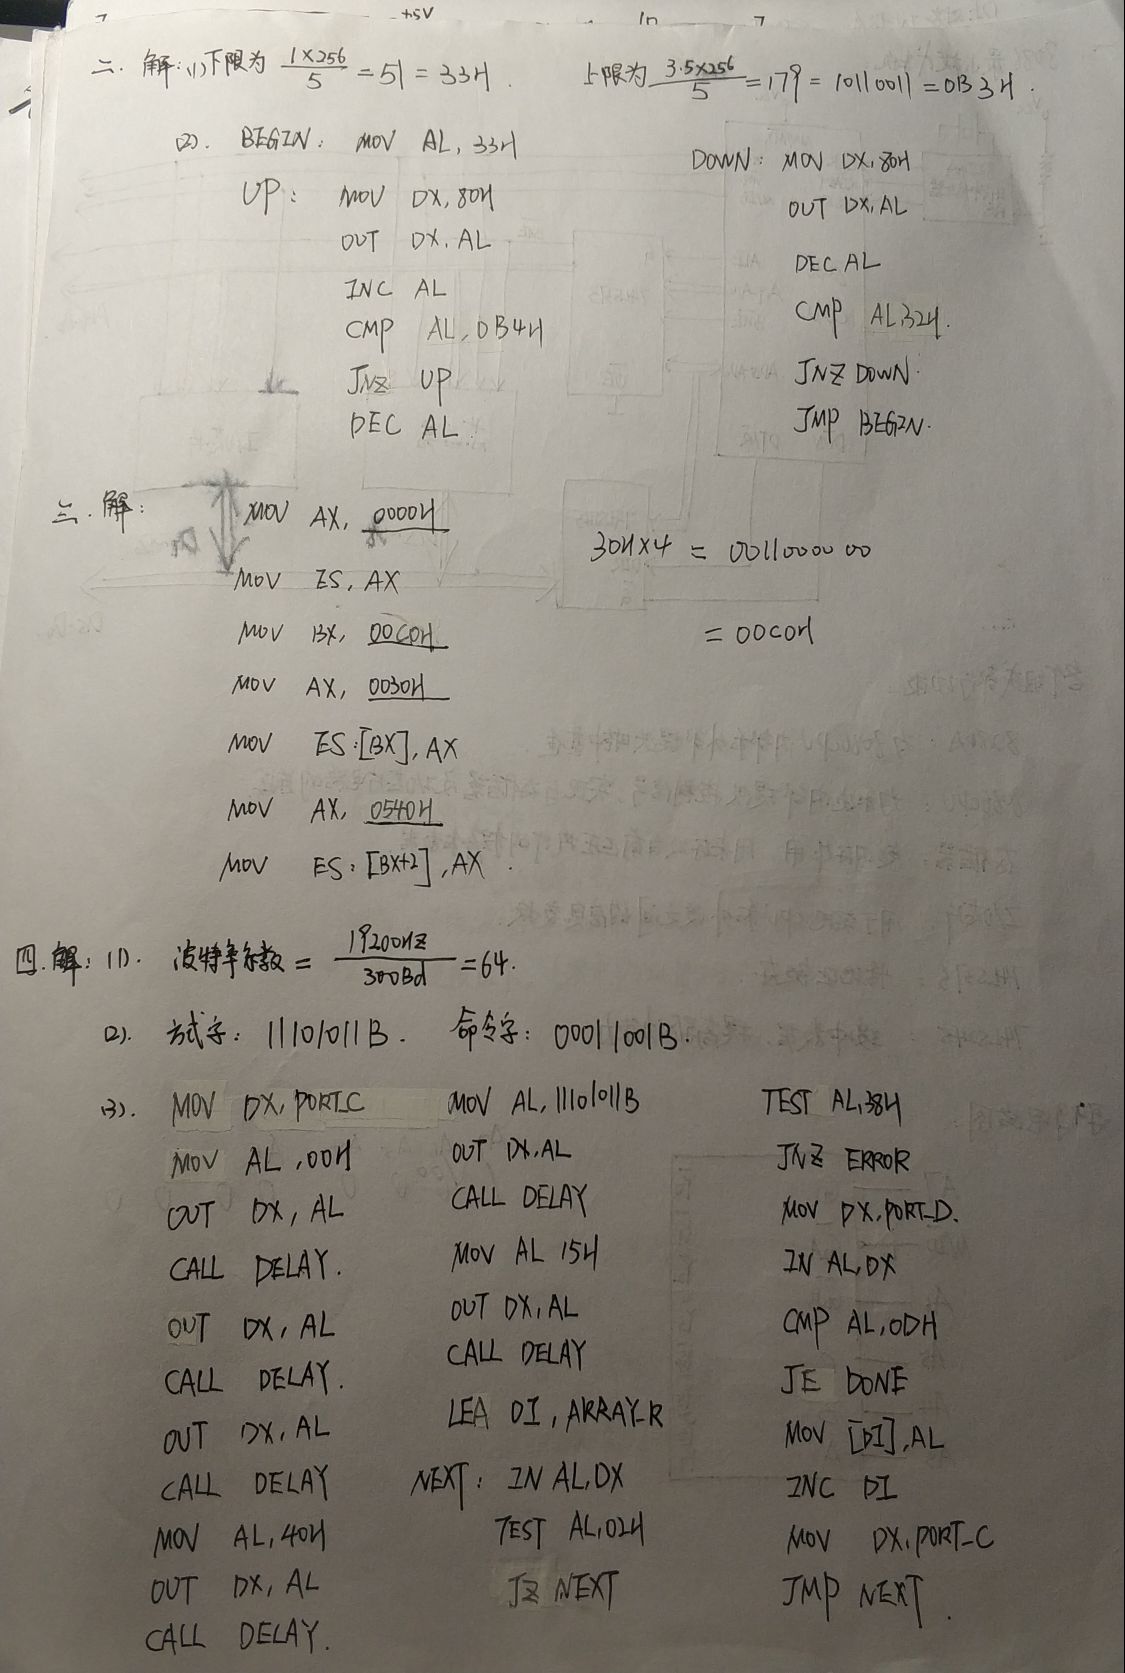 +5V
二. 解: (1) 下限为 1×256/5 = 51 = 33H. 上限为 3.5×256/5 = 179 = 10110011 = 0B3H.
(2). BEGIN: MOV AL, 33H
UP: MOV DX, 80H
OUT DX, AL
INC AL
CMP AL, 0B4H
JNZ UP
DEC AL
DOWN: MOV DX, 80H
OUT DX, AL
DEC AL
CMP AL, 32H.
JNZ DOWN.
JMP BEGIN.
三. 解: MOV AX, 0000H
MOV ES, AX
MOV BX, 00C0H
MOV AX, 0030H
MOV ES:[BX], AX
MOV AX, 0540H
MOV ES:[BX+2], AX.
30H×4 = 0011000000
= 00C0H
四. 解: (1). 波特率系数 = 19200HZ/300Bd = 64.
(2). 方式字: 11101011B. 命令字: 00011001B.
(3). MOV DX, PORT_C
MOV AL, 00H
OUT DX, AL
CALL DELAY.
OUT DX, AL
CALL DELAY.
OUT DX, AL
CALL DELAY
MOV AL, 40H
OUT DX, AL
CALL DELAY.
MOV AL, 11101011B
OUT DX, AL
CALL DELAY
MOV AL 15H
OUT DX, AL
CALL DELAY
LEA DI, ARRAY_R
NEXT: IN AL, DX
TEST AL, 02H
JZ NEXT
TEST AL, 38H
JNZ ERROR
MOV DX, PORT_D.
IN AL, DX
CMP AL, 0DH
JE DONE
MOV [DI], AL
INC DI
MOV DX, PORT_C
JMP NEXT.